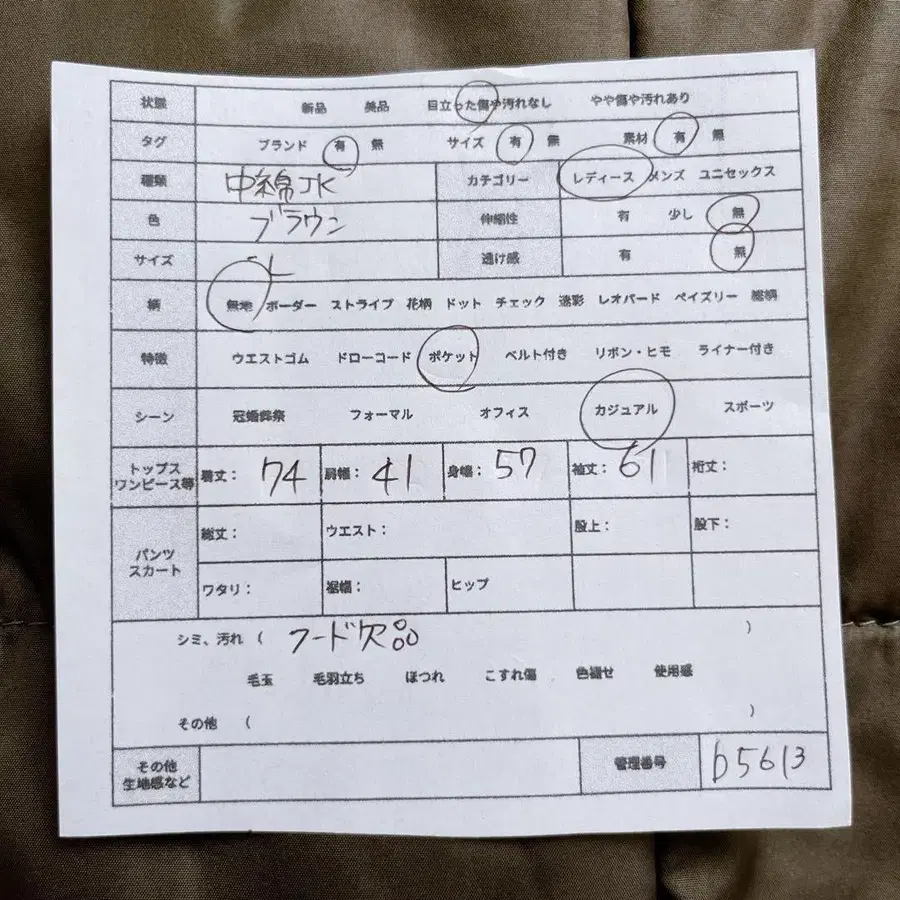 状態 新品 美品 目立った傷や汚れなし やや傷や汚れあり
タグ ブランド 有 無 サイズ 有 無 素材 有 無
種類 中綿JK カテゴリー レディース メンズ ユニセックス
色 ブラウン 伸縮性 有 少し 無
サイズ L 透け感 有 無
柄 無地 ボーダー ストライプ 花柄 ドット チェック 迷彩 レオパード ペイズリー 総柄
特徴 ウエストゴム ドローコード ポケット ベルト付き リボン・ヒモ ライナー付き
シーン 冠婚葬祭 フォーマル オフィス カジュアル スポーツ
トップス
ワンピース等 着丈: 74 肩幅: 41 身幅: 57 袖丈: 61 裄丈:
総丈: ウエスト: 股上: 股下:
パンツ
スカート
ワタリ: 裾幅: ヒップ
シミ、汚れ ( フード欠品 )
毛玉 毛羽立ち ほつれ こすれ傷 色褪せ 使用感
その他 ( )
その他
生地感など 管理番号 b5613